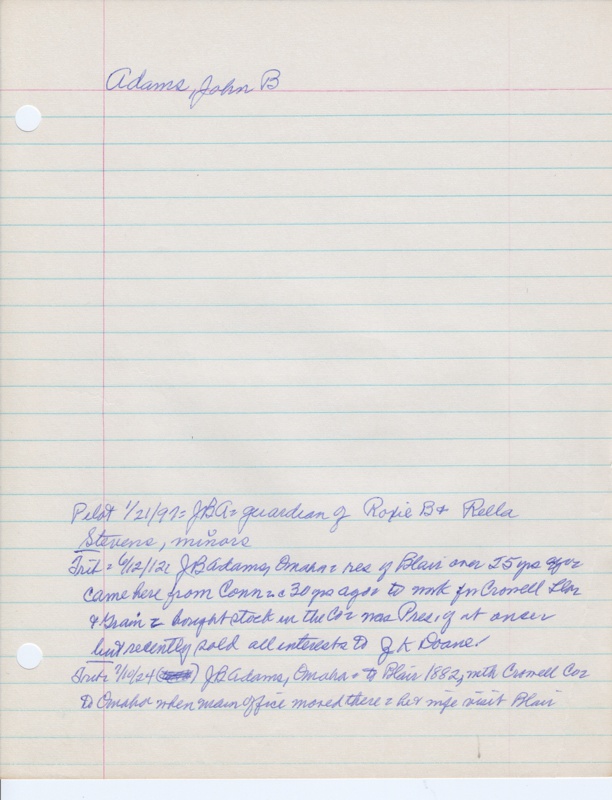 Adams, John B
Pilot 1/21/97 = JBA = guardian of Roxie B & Rella
Stevens, minors
Trib = 6/12/12 J B Adams, Omaha = res of Blair over 25 yrs
came here from Conn = 30 yrs ago = to work for Crowell Lbr
& Grain = bought stock in the Co = was Pres. of at once
but recently sold all interests to J K Doane.
Trib = 7/10/24 J B Adams, Omaha = to Blair 1882, with Crowell Co =
to Omaha when main office moved there = he & wife visit Blair